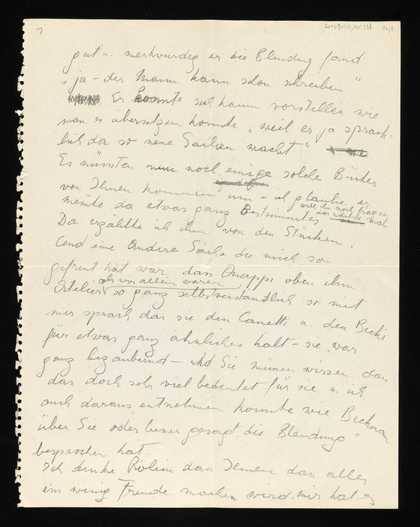 gut u. merkwürdig er die Blendung fand
"ja - der Mann kann schon schreiben"
Er konnte sich kaum vorstellen wie
man es übersetzen konnte, "weil er ja sprach-
lich da so neue Sachen macht"
Es müssten nun noch einige solche Bücher
von Ihnen kommen um - ich glaube, er
will Sie noch fragen
meinte da etwas ganz Bestimmtes
Da erzählte ich ihm von den Stücken.
Und eine andere Sache die mich so
gefreut hat war, dass Onappi oben im
Atelier als wir allein waren
so ganz selbstverständlich so mit
mir sprach, dass sie den Canetti u. den Beck
für etwas ganz ähnliches hält - sie war
ganz bezaubernd - und Sie müssen wissen, dass
das doch sehr viel bedeutet für sie u. ich
auch daraus entnehmen konnte wie Beckman
über Sie oder besser gesagt die "Blendung"
gesprochen hat.
Ich denke dass Ihnen das alles
ein wenig Freude machen wird mir hat es